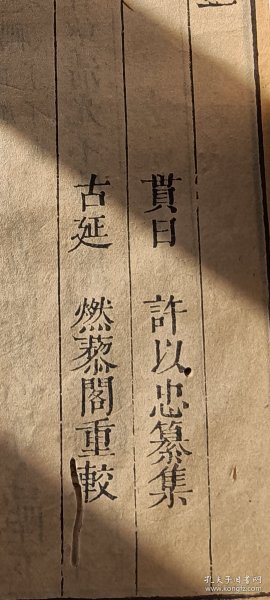 貫日 許以忠纂集
古延 燃藜閣重較
孔夫子旧书网